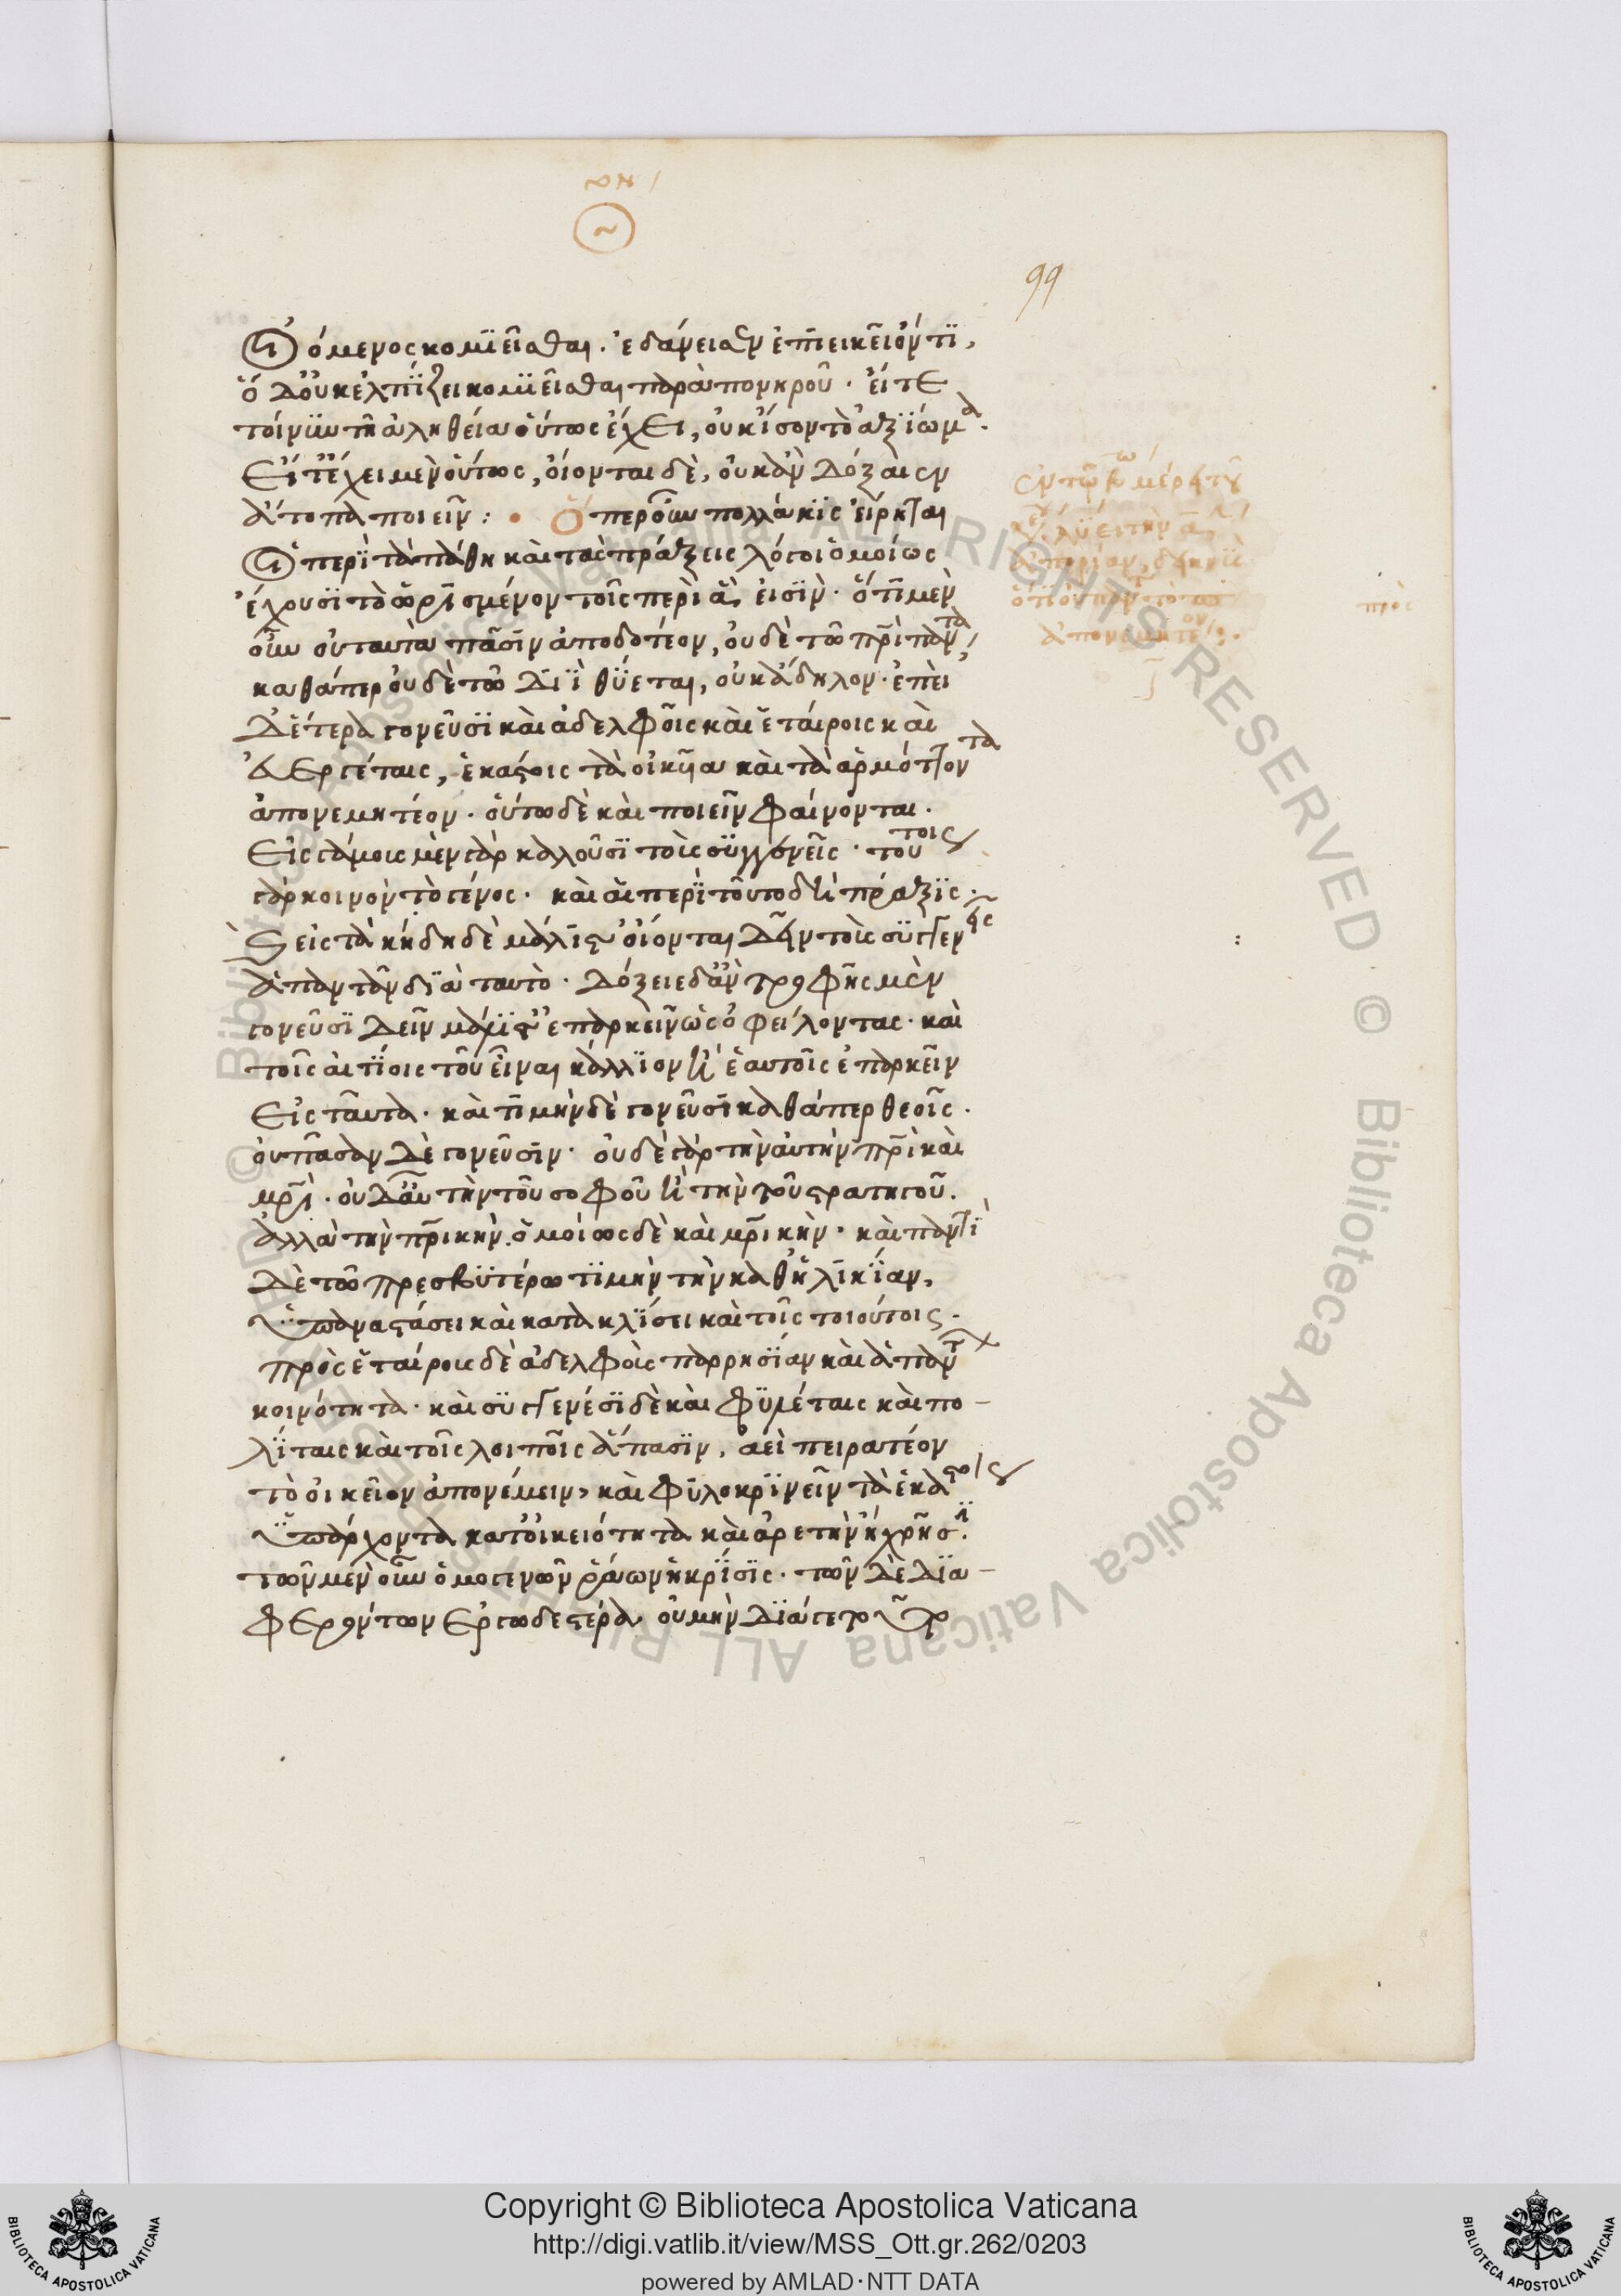 99
οἰόμενος κομιεῖσθαι. ἐδάνεισεν ἐπιεικεῖ ὄντι,
ὁ δ' οὐκ ἐλπίζει κομιεῖσθαι παρὰ πονηροῦ. εἴτε
τοίνυν τῇ ἀληθείᾳ οὕτως ἔχει, οὐκ ἴσον τὸ ἀξίωμα.
εἴτ' ἔχει μὲν οὕτως, οἴονται δὲ, οὐκ ἂν δόξαιεν
ἄτοπα ποιεῖν: Ὅπερ οὖν πολλάκις εἴρηται
οἱ περὶ τὰ πάθη καὶ τὰς πράξεις λόγοι ὁμοίως
ἔχουσι τὸ ὡρισμένον τοῖς περὶ ἅ εἰσιν. ὅτι μὲν
οὖν οὐ ταυτὰ πᾶσιν ἀποδοτέον, οὐδὲ τῷ πρὶ πάντα,
καθάπερ οὐδὲ τῷ Διὶ θύεται, οὐκ ἄδηλον. ἐπεὶ
δ' ἕτερα γονεῦσι καὶ ἀδελφοῖς καὶ ἑταίροις καὶ
εὐεργέταις, ἑκάστοις τὰ οἰκεῖα καὶ τὰ ἁρμόττοντα
ἀπονεμητέον. οὕτω δὲ καὶ ποιεῖν φαίνονται.
εἰς γάμους μὲν γὰρ καλοῦσι τοὺς συγγενεῖς. τούτοις
γὰρ κοινὸν τὸ γένος. καὶ αἱ περὶ τοῦτο δὴ πράξεις.
καὶ εἰς τὰ κήδη δὲ μάλιστ' οἴονται δεῖν τοὺς συγγενεῖς
ἀπαντᾶν διὰ ταυτό. δόξειε δ' ἂν τροφῆς μὲν
γονεῦσι δεῖν μάλιστ' ἐπαρκεῖν ὡς ὀφείλοντας. καὶ
τοῖς αἰτίοις τοῦ εἶναι κάλλιον ἢ ἑαυτοῖς ἐπαρκεῖν
εἰς ταῦτα. καὶ τιμὴν δὲ γονεῦσι καθάπερ θεοῖς.
οὐ πᾶσαν δὲ γονεῦσιν. οὐδὲ γὰρ τὴν αὐτὴν πρὶ καὶ
μρὶ. οὐδ' αὖ τὴν τοῦ σοφοῦ ἢ τὴν τοῦ στρατηγοῦ.
ἀλλὰ τὴν πρικὴν. ὁμοίως δὲ καὶ μρικὴν. καὶ παντὶ
δὲ τῷ πρεσβυτέρῳ τιμὴν τὴν καθ' ἡλικίαν,
ὑπαναστάσει καὶ κατακλίσει καὶ τοῖς τοιούτοις.
πρὸς ἑταίρους δὲ ἀδελφοὺς παρρησίαν καὶ ἁπάντων
κοινότητα. καὶ συγγενέσι δὲ καὶ φυλέταις καὶ πο-
λίταις καὶ τοῖς λοιποῖς ἅπασιν, ἀεὶ πειρατέον
τὸ οἰκεῖον ἀπονέμειν, καὶ φυλοκρινεῖν τὰ ἑκάστοις
ὑπάρχοντα κατ' οἰκειότητα καὶ ἀρετὴν ἢ χρῆσιν.
τῶν μὲν οὖν ὁμογενῶν ῥᾴων ἡ κρίσις. τῶν δὲ δια-
φερόντων ἐργωδεστέρα. οὐ μὴν διά γε τοῦτο
ἐν τῷ β μέρει τοῦ
λύει τὴν
ἀπορίαν,
ὅτι οὐ
ἀπονεμητέον.
πρὸς
Copyright © Biblioteca Apostolica Vaticana
http://digi.vatlib.it/view/MSS_Ott.gr.262/0203
powered by AMLAD·NTT DATA
BIBLIOTECA APOSTOLICA VATICANA
BIBLIOTECA APOSTOLICA VATICANA
© Biblioteca Apostolica Vaticana ALL RIGHTS RESERVED © Biblioteca Apostolica Vaticana ALL RIGHTS RESERVED